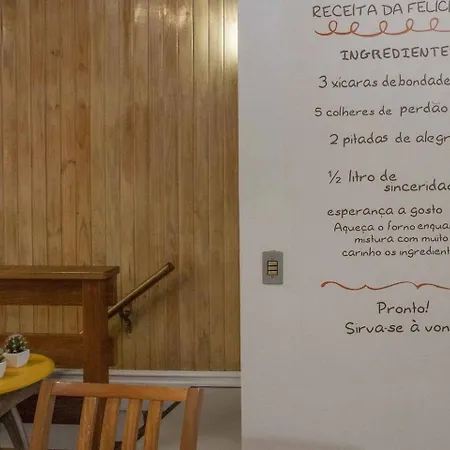 RECEITA DA FELIC
INGREDIENTE
3 xícaras de bondade
5 colheres de perdão
2 pitadas de alegr
½ litro de
sinceridad
esperança a gosto
Aqueça o forno enqua
mistura com muito
carinho os ingredient
Pronto!
Sirva-se à von